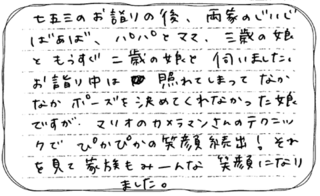 七五三のお詣りの後、両家のじいじ
ばぁば、パパとママ、三歳の娘
ともうすぐ二歳の娘と伺いました。
お詣り中は照れてしまってなか
なかポーズを決めてくれなかった娘
ですが、マリオのカメラマンさんのテクニッ
クでぴかぴかの笑顔続出！それ
を見て家族もみーんな笑顔になり
ました。